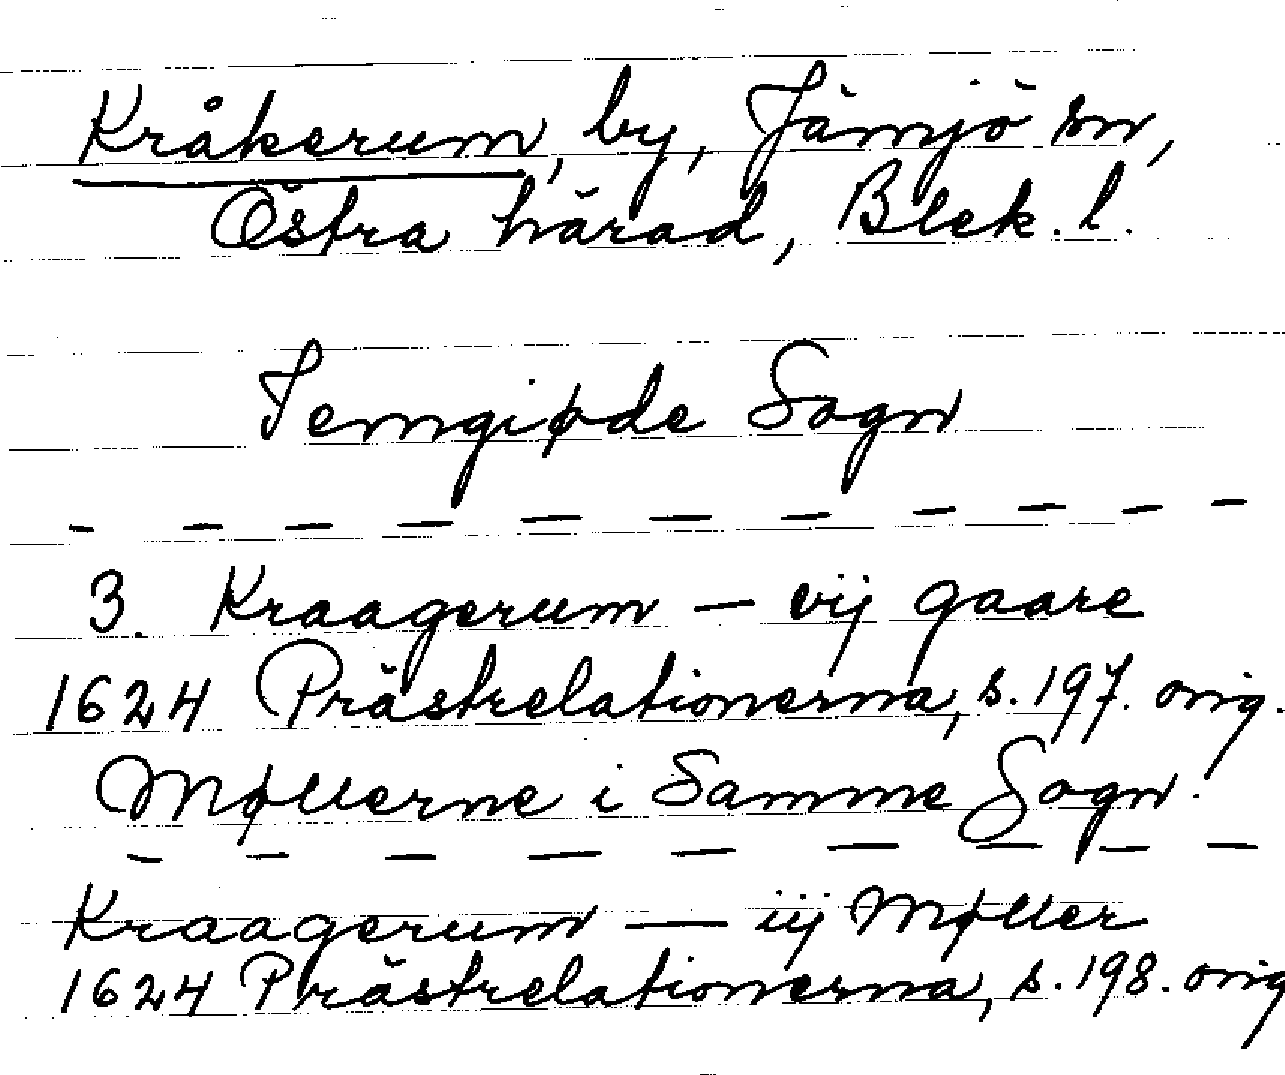 Kråkerum, by, Jämjö sn,
Östra härad, Blek. l.
Jemngiøde Sogn
- - - - - - - - - - -
3. Kraagerum — vij gaare
1624 Prästrelationerna, s. 197. orig.
Møllerne i Samme Sogn.
- - - - - - - - -
Kraagerum — iij Møller
1624 Prästrelationerna, s. 198. orig